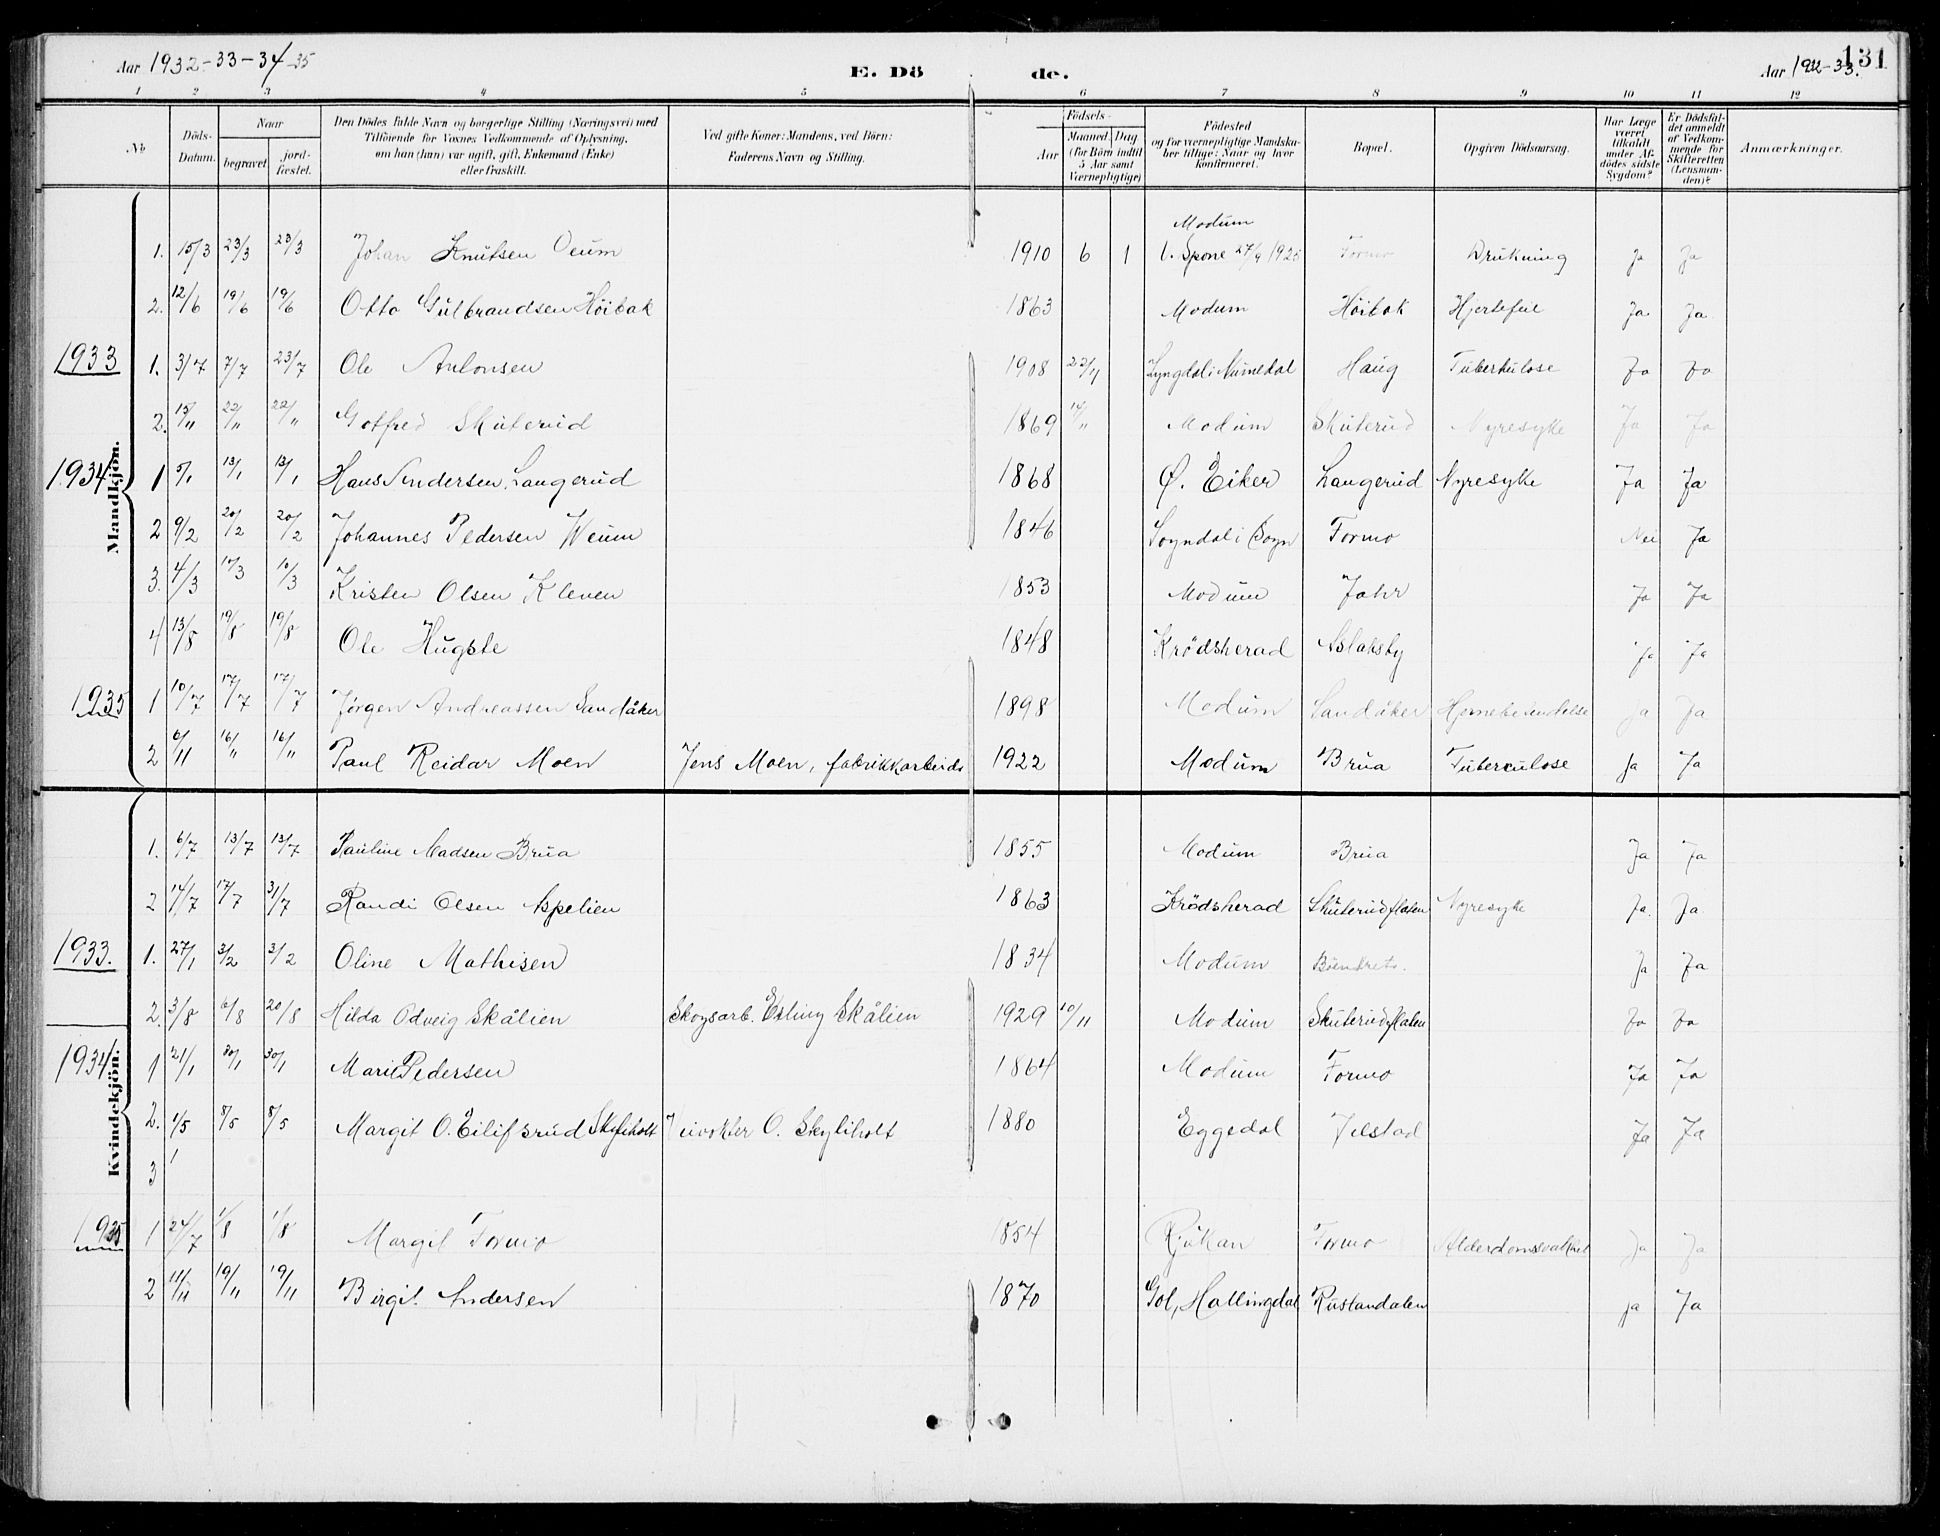 Aar 1932-33-34-35
E. Dö de.
Aar 1932-33.
131
1 2 3 4 5 6 7 8 9 10 11 12
No
Döds-Datum.
Naar
begravet
jord-fæstet.
Den Dödes fulde Navn og borgerlige Stilling (Næringsvei) med Tilföiende for Voxnes Vedkommende af Oplysning, om han (hun) var ugift, gift, Enkemand (Enke) eller fraskilt.
Ved gifte Koner: Mandens, ved Börn: Faderens Navn og Stilling.
Födsels-
Aar
Maaned Dag
(for Börn indtil 5 Aar samt Værnepligtige)
Födested og for værnepligtige Mandsku-ber tillige: Naar og hvor konfirmeret.
Bopæl.
Opgiven Dödsaarsag.
Har Læge været tilkaldt under Af-dødes sidste Sygdom?
Er Dödsfal-det anmeldt af Vedkom-mende for Skifteretten (Lensman-den)?
Anmærkninger.
Mandkjön.
Modum
1. 15/3 23/3 23/3 Johan Knutsen Veum 1910 6 1 V. Spone 27/9 1925 Formo Drukning Ja Ja
2. 12/6 19/6 19/6 Otto Gulbrandsen Höibak 1863 Modum Höibak Hjertefeil Ja Ja
1933
1. 3/7 7/7 23/7 Ole Antonsen 1908 22/11 Lyngdal i Numedal Haug Tuberkulose Ja Ja
2. 15/11 22/11 22/11 Gotfred Skuterud 1869 14/11 Modum Skuterud Nyresyke Ja Ja
1934
1 5/1 13/1 13/1 Hans Andersen Langerud 1868 Ø. Eiker Langerud Nyresyke Ja Ja
2 9/2 20/2 20/2 Johannes Pedersen Weum 1846 Sogndal i Sogn Formo Nei Ja
3. 4/3 10/3 10/3 Kristen Olsen Kleven 1853 Modum Jahr Ja Ja
4 13/8 19/8 19/8 Ole Hugste 1848 Krødsherad Aslaksby Ja Ja
1935
1 10/7 17/7 17/7 Jørgen Andreassen Sandåker 1898 Modum Sandåker Hjernebetendelse Ja Ja
2 6/11 16/11 16/11 Paul Reidar Moen Jens Moen, fabrikkarbeider 1922 Modum Brua Tuberculose Ja Ja
Kvindekjön.
1. 6/7 13/7 13/7 Pauline Madsen Brua 1855 Modum Brua Ja Ja
2 14/7 17/7 31/7 Randi Olsen Aspelien 1863 Krødsherad Skuterudflaten Nyresyke Ja. Ja.
1933.
1. 27/1 3/2 3/2 Oline Mathisen 1834 Modum Ja Ja
2. 3/8 6/8 20/8 Hilda Odveig Skålien Skogsarb. Erling Skålien 1929 10/11 Modum Skuterudflaten Ja Ja
1934
1 21/1 30/1 30/1 Marie Pedersen 1864 Modum Formo Ja Ja
2. 1/5 8/5 8/5 Margit O. Eilifsrud Skyliholt Veivokter O. Skyliholt 1880 Eggedal Ja Ja
3 1
1935
1 24/7 1/8 1/8 Margit Formo 1854 Rjukan Formo Alderdomssvakhet Ja Ja
2 11/11 19/11 19/11 Birgit Andersen 1870 Gol, Hallingdal Rustandalen ja Ja